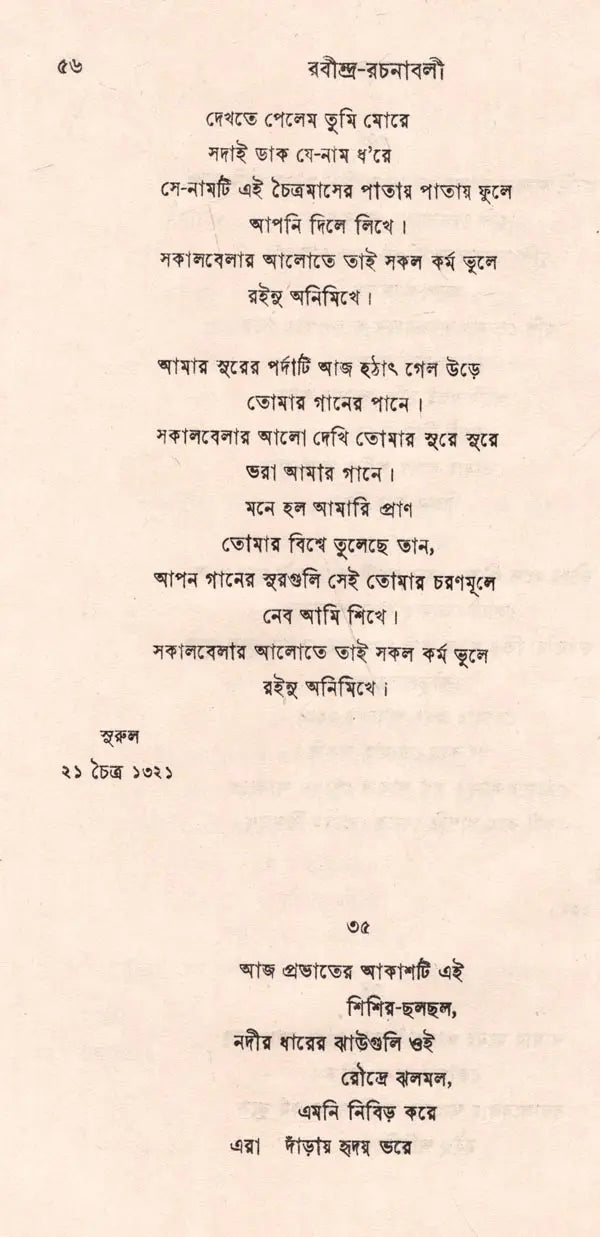 ৫৬ রবীন্দ্র-রচনাবলী
দেখতে পেলেম তুমি মোরে
সদাই ডাক যে-নাম ধ'রে
সে-নামটি এই চৈত্রমাসের পাতায় পাতায় ফুলে
আপনি দিলে লিখে।
সকালবেলার আলোতে তাই সকল কর্ম ভুলে
রইনু অনিমিখে।
আমার সুরের পর্দাটি আজ হঠাৎ গেল উড়ে
তোমার গানের পানে।
সকালবেলার আলো দেখি তোমার সুরে সুরে
ভরা আমার গানে।
মনে হল আমারি প্রাণ
তোমার বিশ্বে তুলেছে তান,
আপন গানের সুরগুলি সেই তোমার চরণমূলে
নেব আমি শিখে।
সকালবেলার আলোতে তাই সকল কর্ম ভুলে
রইনু অনিমিখে।
সুরুল
২১ চৈত্র ১৩২১
৩৫
আজ প্রভাতের আকাশটি এই
শিশির-ছলছল,
নদীর ধারের ঝাউগুলি ওই
রৌদ্রে ঝলমল,
এমনি নিবিড় করে
এরা দাঁড়ায় হৃদয় ভরে